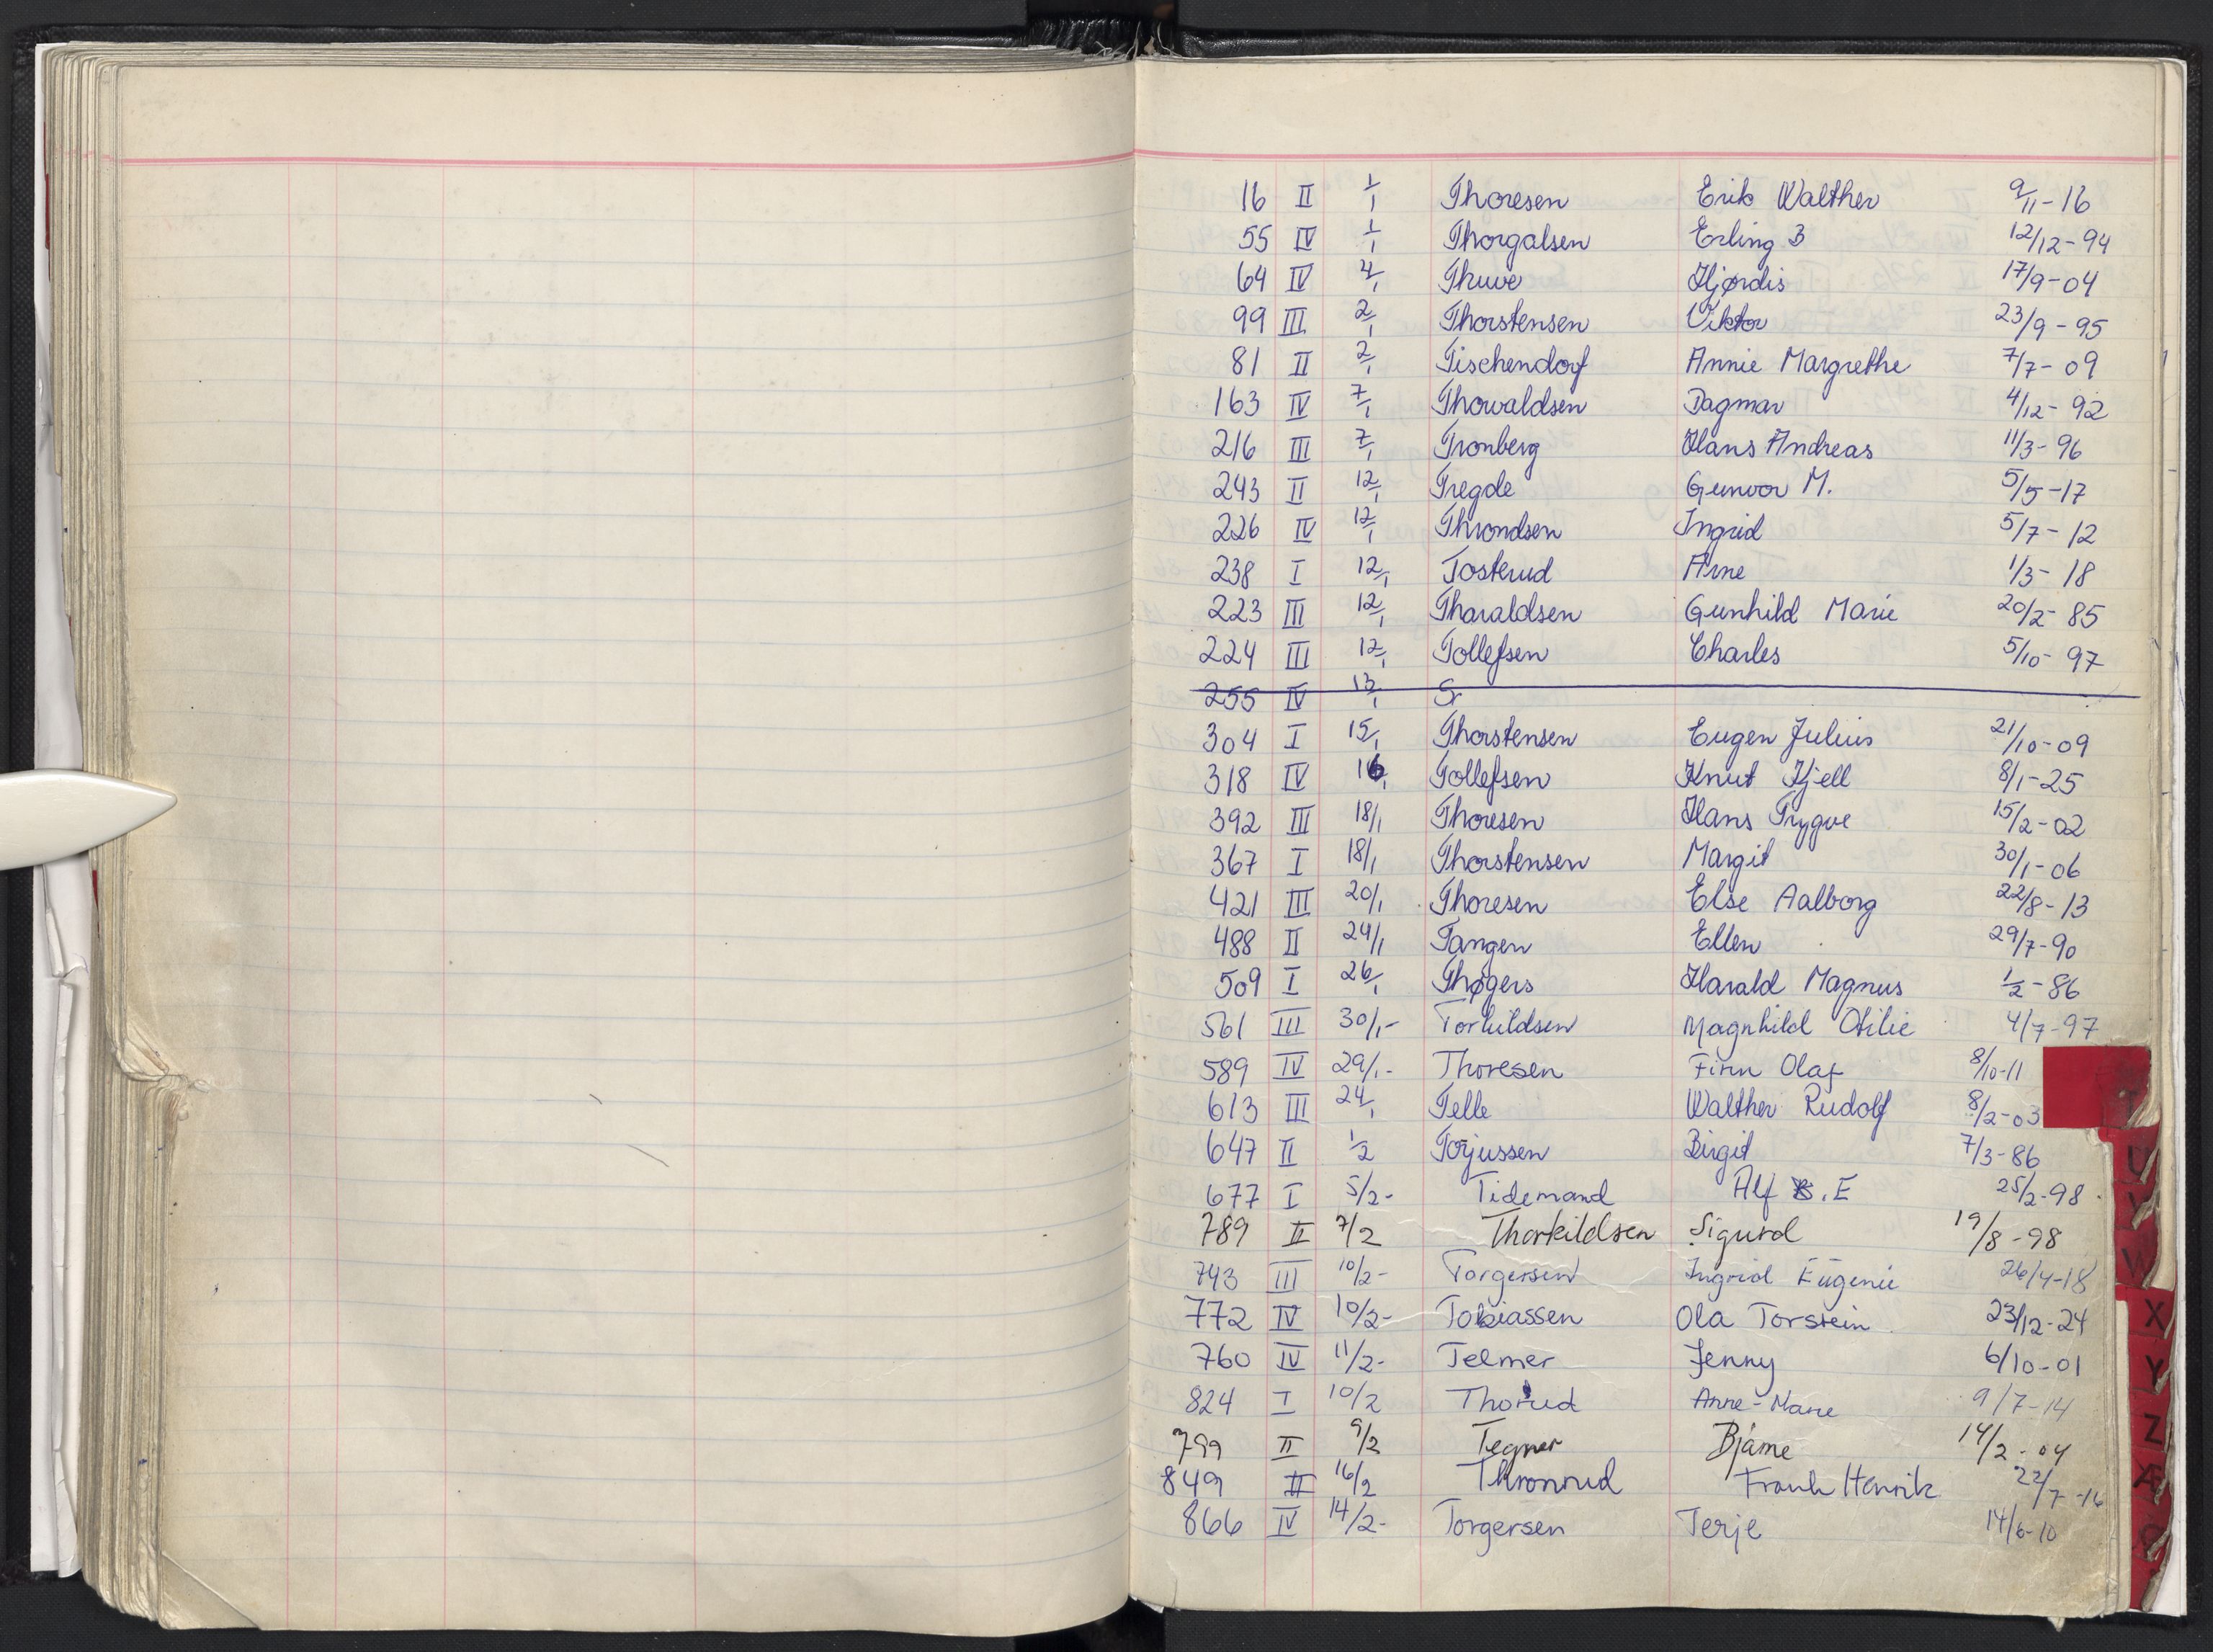 16 II 1/1 Thoresen Erik Walther 9/11-16
55 IV 1/1 Thorgalsen Erling B 12/12-94
64 IV 4/1 Thuve Hjørdis 17/9-04
99 III 2/1 Thorstensen Viktor 23/9-95
81 II 2/1 Tischendorf Annie Margrethe 7/7-09
163 IV 7/1 Thorvaldsen Dagmar 4/12-92
216 III 7/1 Tronberg Hans Andreas 11/3-96
243 II 12/1 Tregde Gunvor M. 5/5-17
226 IV 12/1 Throndsen Ingrid 5/7-12
238 I 12/1 Tosterud Arne 1/3-18
223 III 12/1 Tharaldsen Gunhild Marie 20/2-85
224 III 12/1 Tollefsen Charles 5/10-97
255 IV 13/1
304 I 15/1 Thorstensen Eugen Julius 21/10-09
318 IV 16/1 Tollefsen Knut Kjell 8/1-25
392 III 18/1 Thoresen Hans Trygve 15/2-02
367 I 18/1 Thorstensen Margit 30/1-06
421 III 20/1 Thoresen Else Aalborg 22/8-13
488 II 24/1 Tangen Ellen 29/7-90
509 I 26/1 Thøgers Harald Magnus 1/2-86
561 III 30/1- Torkildsen Magnhild Otilie 4/7-97
589 IV 29/1- Thoresen Finn Olaf 8/10-11
613 III 24/1 Telle Walther Rudolf 8/2-03
647 II 1/2 Torjussen Birgit 7/3-86
U
677 I 5/2- Tidemand Alf B.E 25/2-98
V
789 II 7/2 Thorkildsen Sigurd 19/8-98
W
743 III 10/2- Torgersen Ingrid Eugenie 26/4-18
772 IV 10/2- Tobiassen Ola Torstein 23/12-24
X
760 IV 11/2- Telmer Jenny 6/10-01
Y
824 I 10/2 Thorud Anne-Marie 9/7-14
799 II 9/2 Tegner Bjarne 14/2-04
Z
849 II 16/2 Thronrud Frank Henrik 22/7-16
Æ
866 IV 14/2- Torgersen Terje 14/6-10
Ø